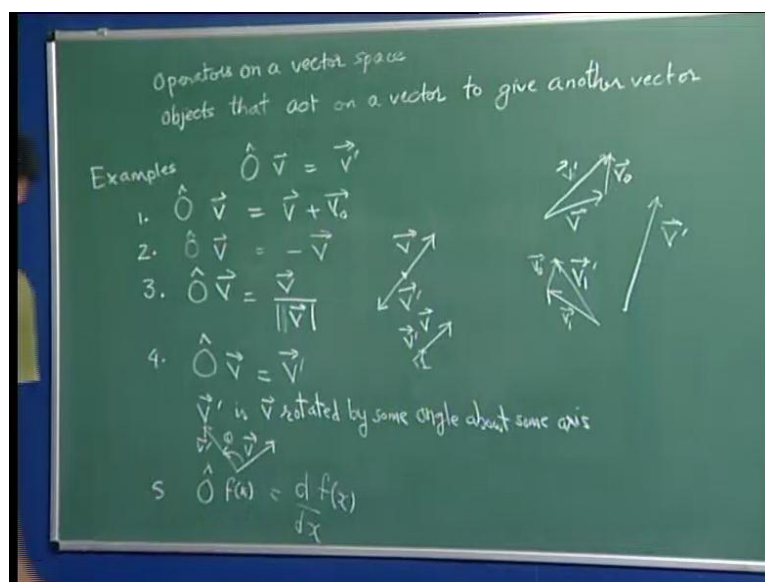 Operators on a vector space
Objects that act on a vector to give another vector
Examples Ô v⃗ = v⃗'
1. Ô v⃗ = v⃗ + v⃗₀
2. Ô v⃗ = - v⃗
3. Ô v⃗ = v⃗ / ||v⃗|
4. Ô v⃗ = v⃗'
v⃗' is v⃗ rotated by some angle about some axis
v⃗' θ v⃗
5 Ô f(x) = d/dx f(x)
v⃗
v⃗'
v⃗' v⃗
v⃗' v⃗₀
v⃗
v⃗₀ v⃗₁'
v⃗₁
v⃗'